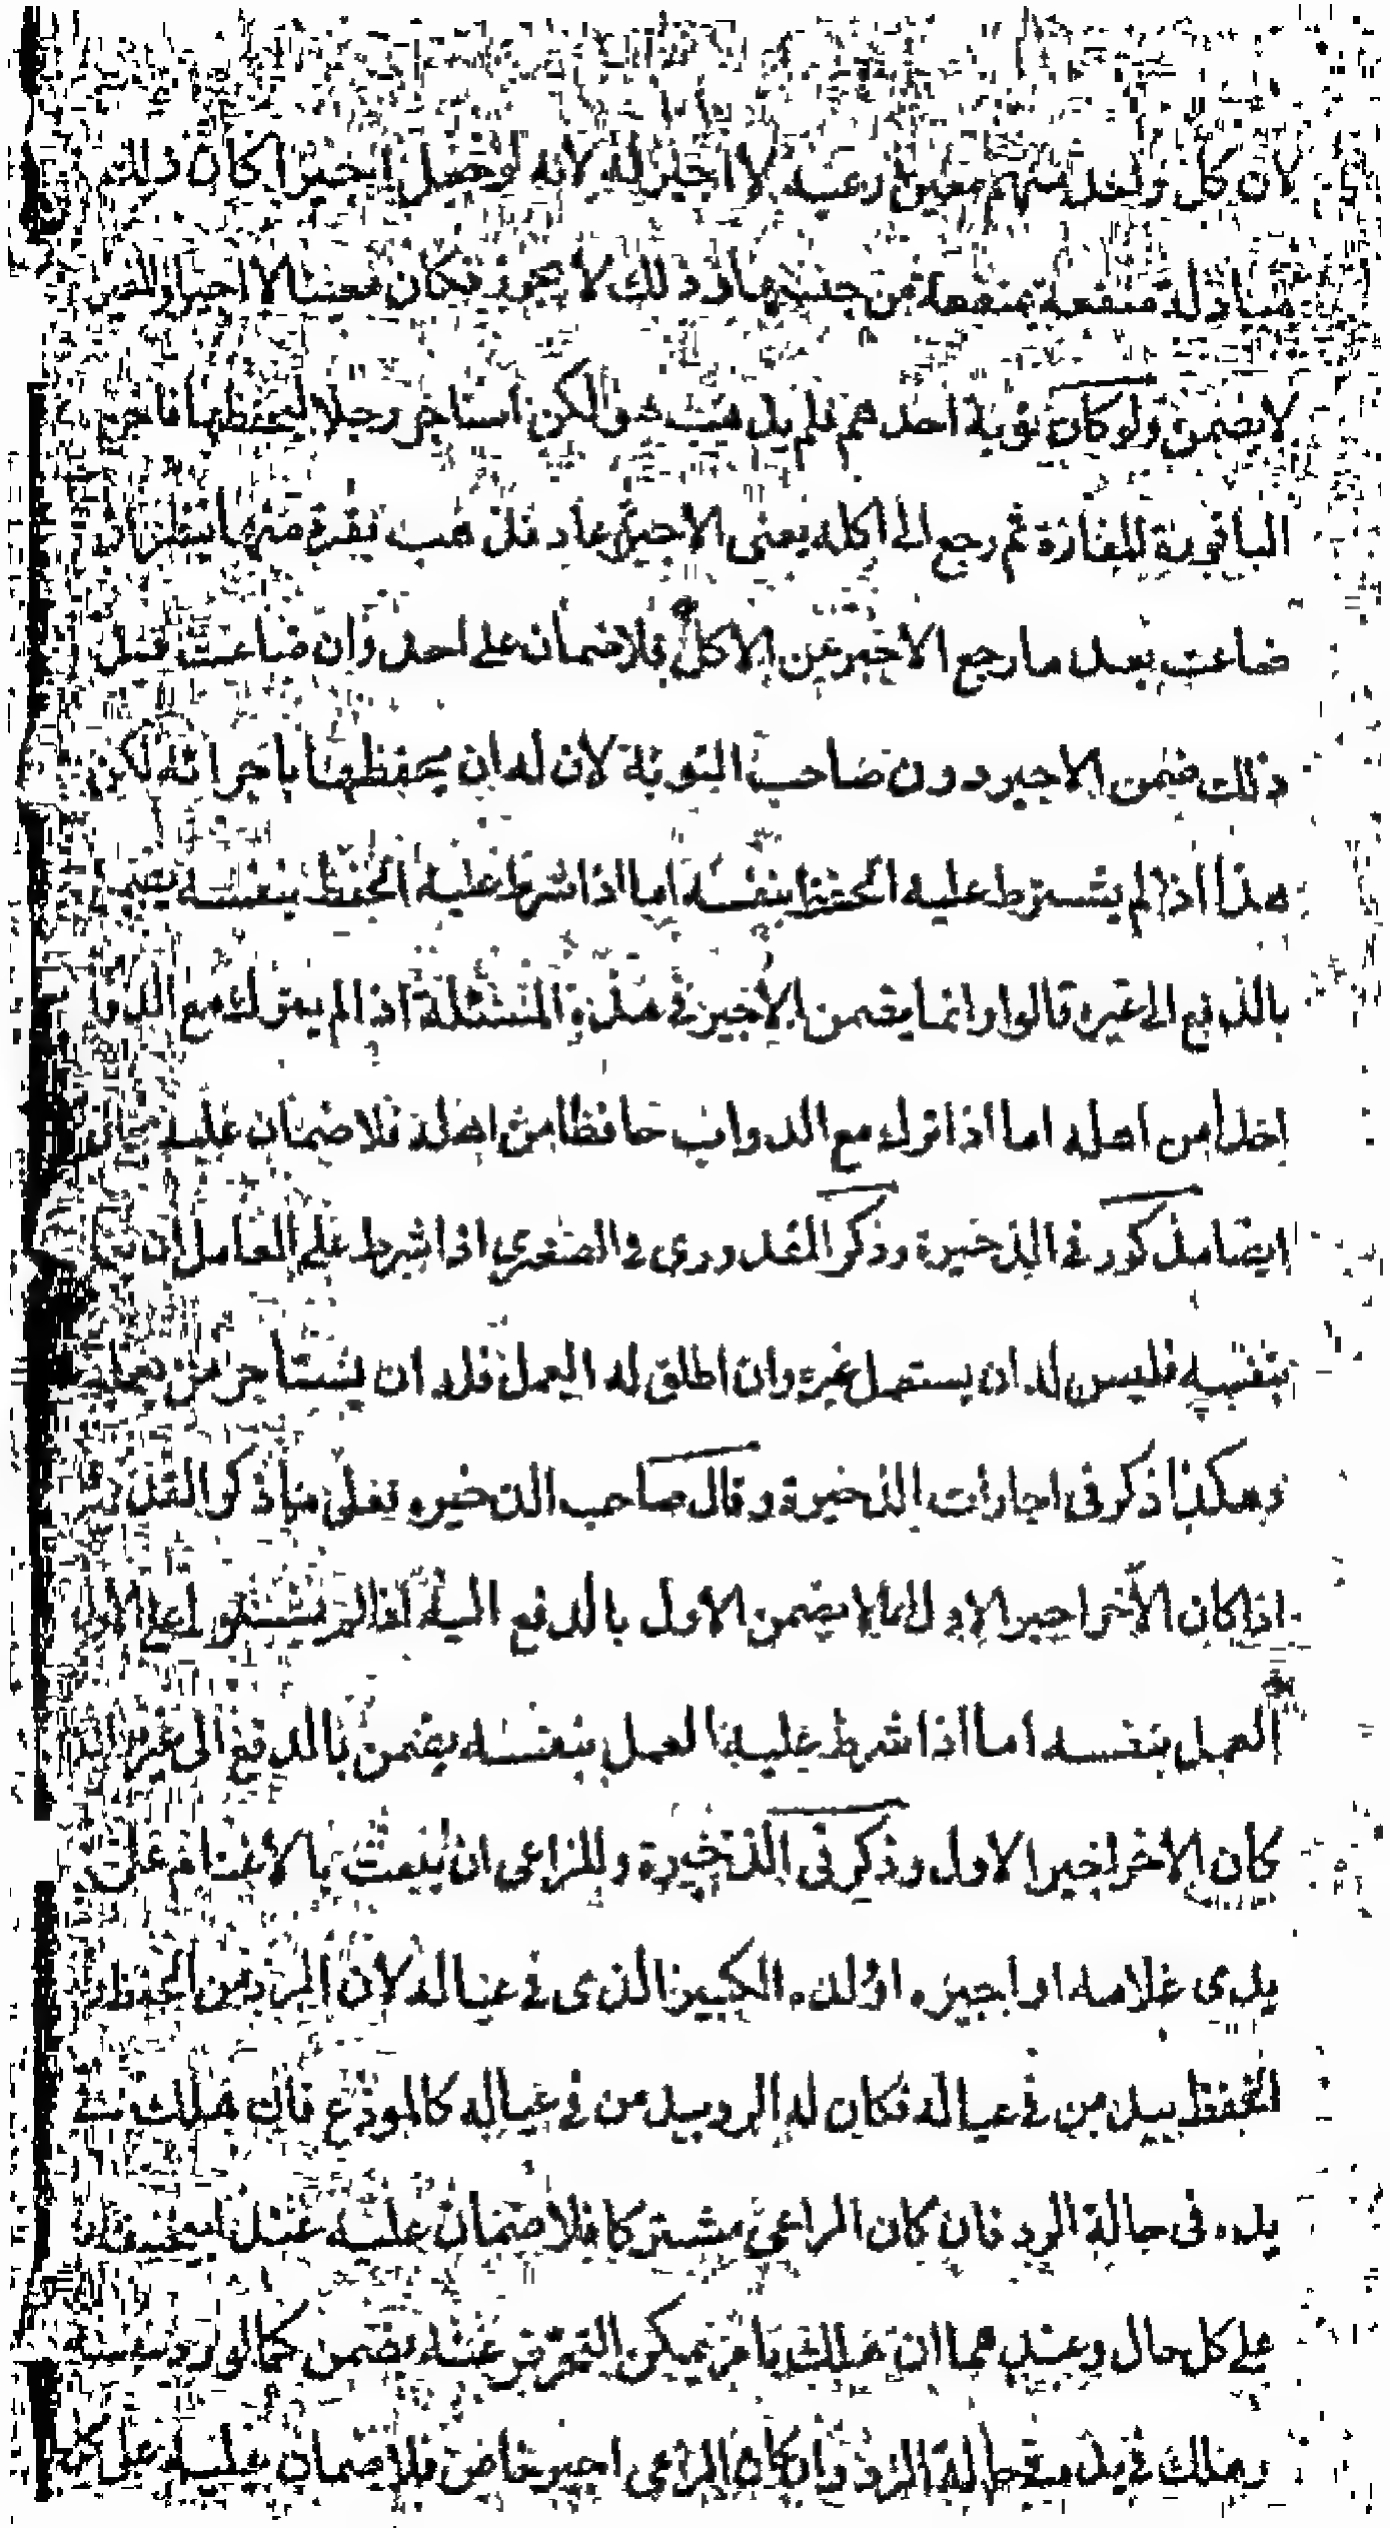 لان كل واحد منهم معين رعيه لا اجير له لانه لو جعل اجيرا كان ذلك
مبادلة منفعة بمنفعة من جنسها وذلك لا يجوز فكان معينا لا اجيرا والمعين
لا يضمن ولو كان نوبة احدهم فلم يذهب هو ولكن استاجر رجلا ليحفظها فاخرج
الباقورة للمفازة ثم رجع الى اكله يعني الاجير ثم عاد فذهب بقرة منها
ضاعت بعد ما رجع الاجير عن الاكل فلا ضمان على احد وان ضاعت قبل
ذلك ضمن الاجير دون صاحب النوبة لان له ان يحفظها باجرائه لكن
هذا اذا لم يشترط عليه الحفظ بنفسه اما اذا شرط عليه الحفظ بنفسه يضمن
بالدفع الى غيره قالوا وانما يضمن الاجير في هذه المسئلة اذا لم يترك مع الدواب
احدا من اهله اما اذا ترك مع الدواب حافظا من اهله فلا ضمان عليه
ايضا مذكور في الذخيرة وذكر القدوري في الصغرى اذا شرط على العامل ان يعمل
بنفسه فليس له ان يستعمل غيره وان اطلق له العمل فله ان يستاجر من يعمله
وهكذا ذكر في اجارات الذخيرة وقال صاحب الذخيرة فعلى ما ذكر القدوري
اذا كان الآخر اجير الاول لا يضمن الاول بالدفع اليه اذا لم يشترط على الاول
العمل بنفسه اما اذا شرط عليه العمل بنفسه يضمن بالدفع الى غيره وان
كان الآخر اجير الاول وذكر في الذخيرة وللراعي ان يبعث بالاغنام على
يدي غلامه او اجيره او ولده الكبير الذي في عياله لان الرد من الحفظ وله
الحفظ بيد من في عياله فكان له الرد بيد من في عياله كالمودع فان هلك في
يده في حالة الرد فان كان الراعي مشتركا فلا ضمان عليه عند ابي حنيفة
على كل حال وعندهما ان هلك بامر يمكن التحرز عنه يضمن كما لو رد بنفسه
وهلك في يده في حالة الرد وان كان الراعي اجير خاص فلا ضمان عليه على كل